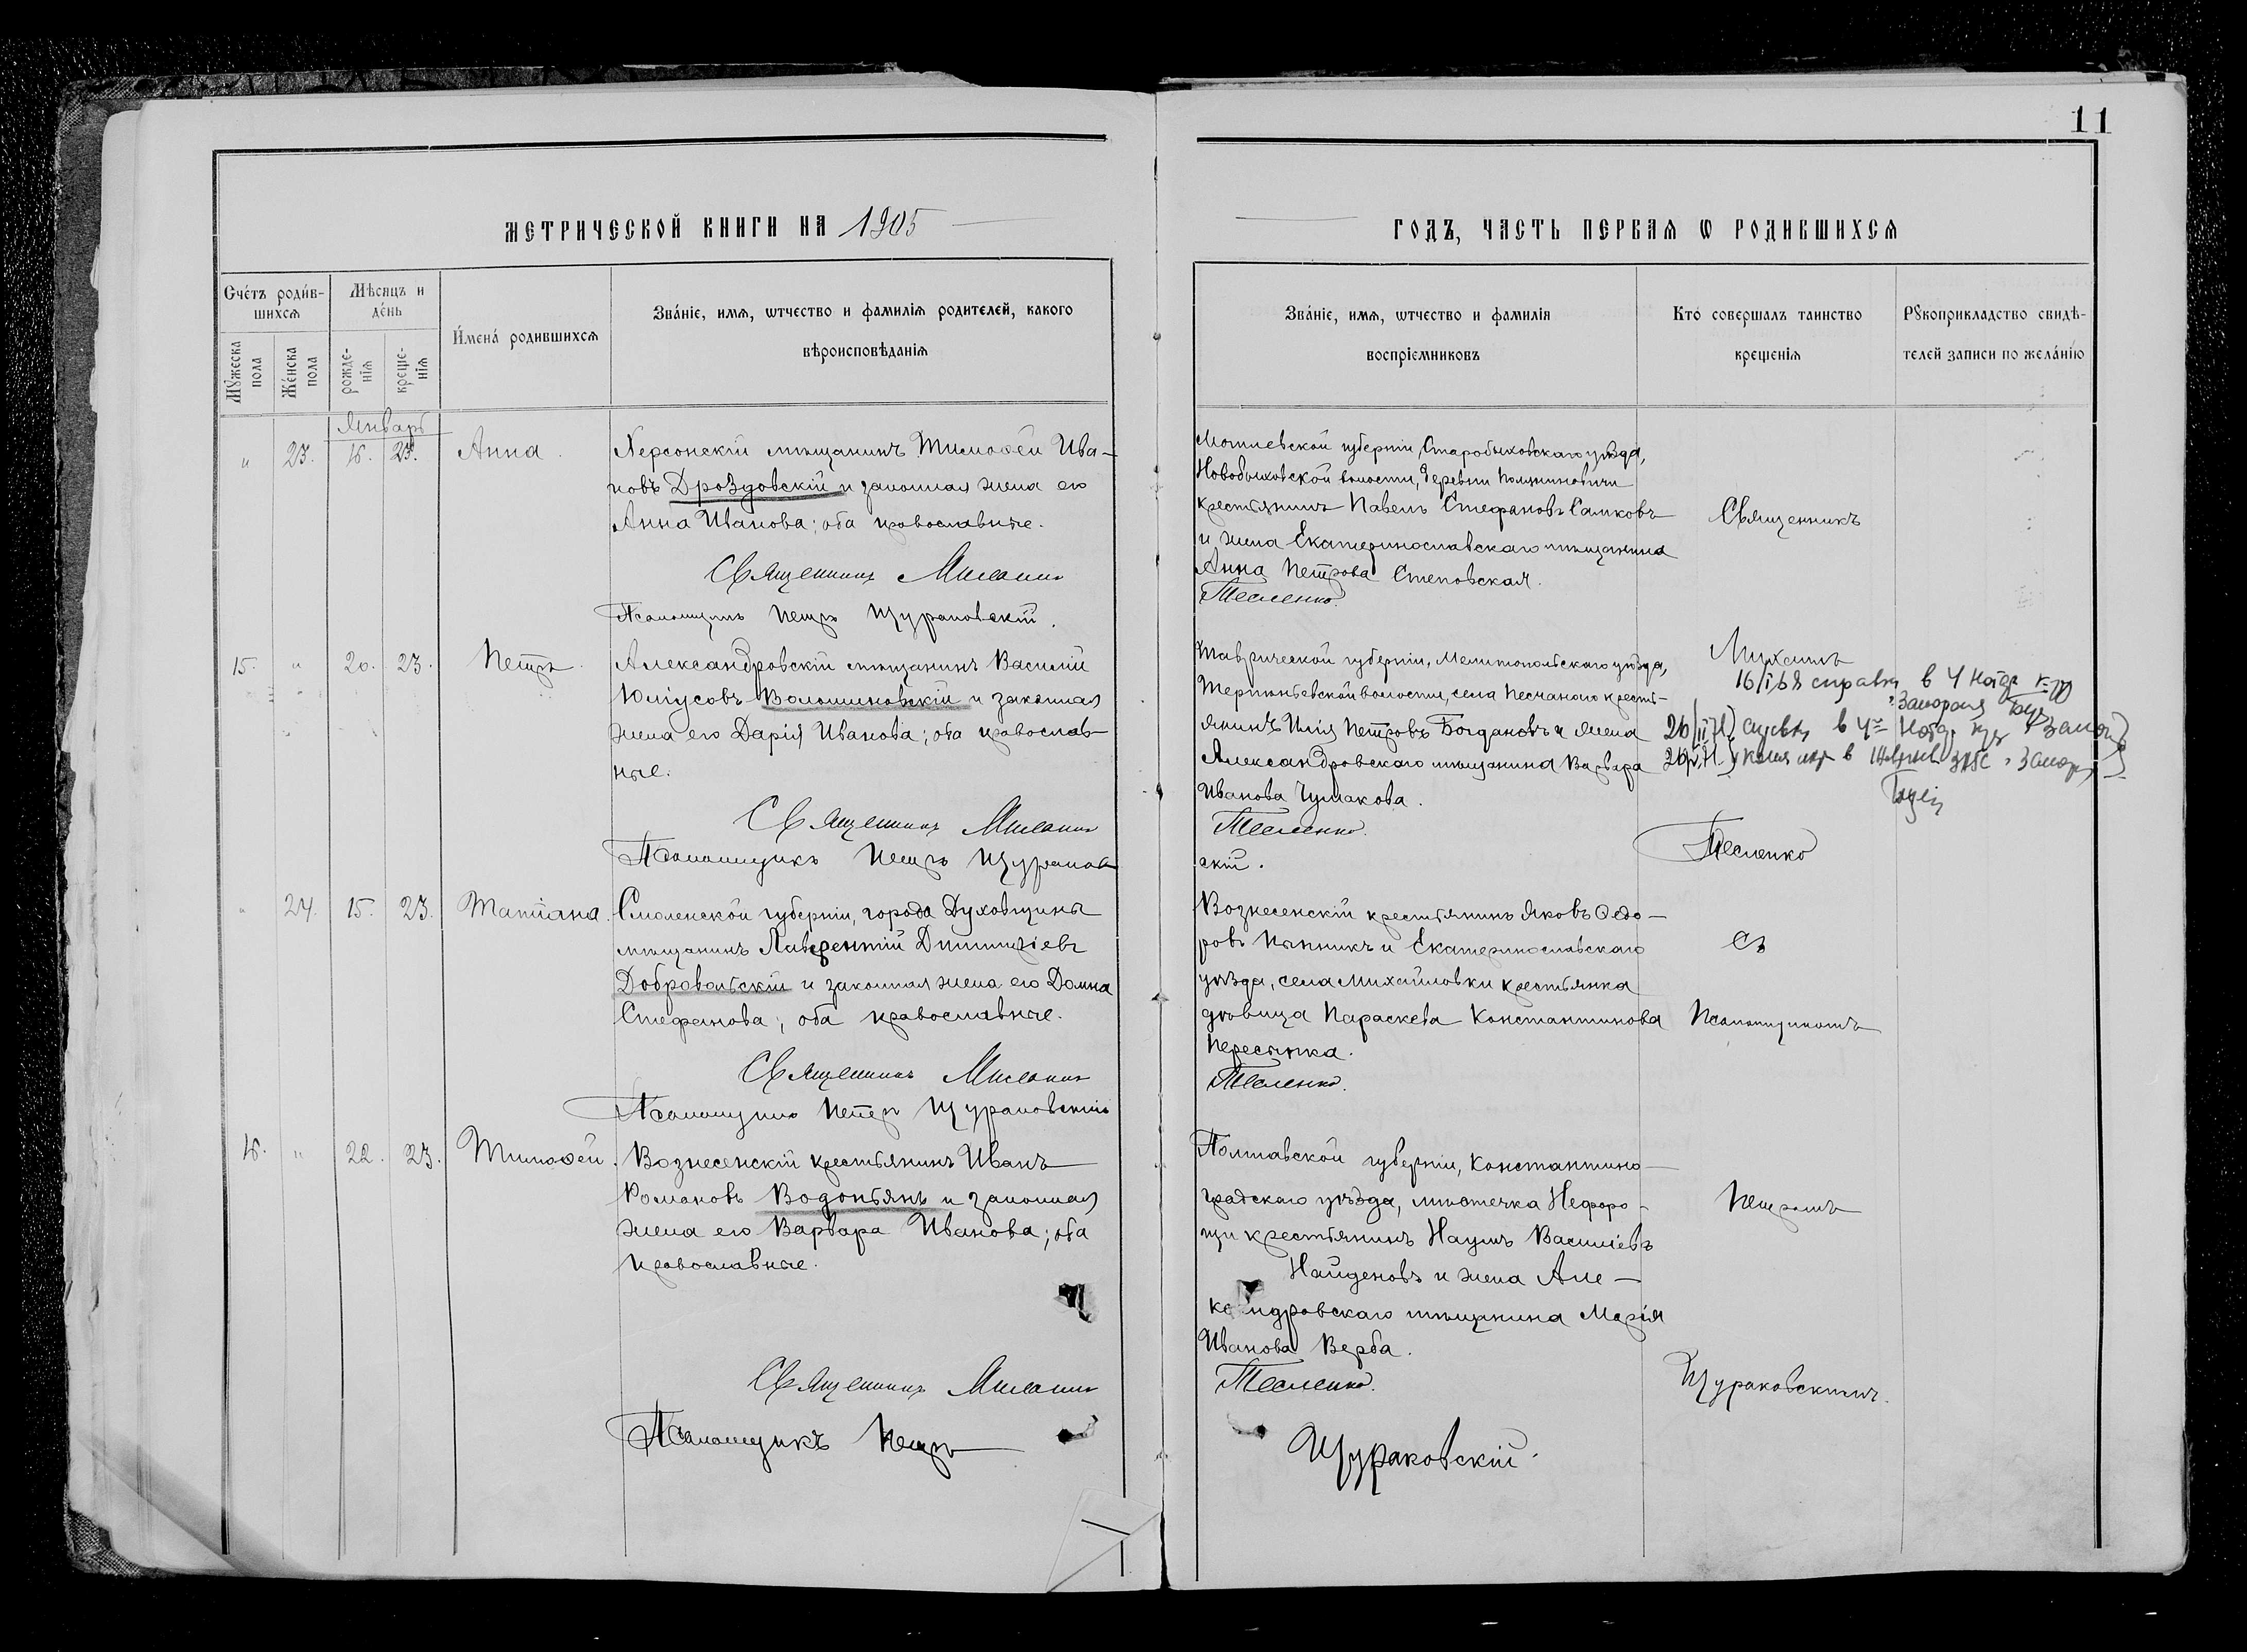 11
МЕТРИЧЕСКОЙ КНИГИ НА 1905
ГОДЪ, ЧАСТЬ ПЕРВАЯ Ѡ РОДИВШИХСЯ
Счéтъ роди́в-
шихсѧ
Мѣсяцъ и
де́нь
Мꙋ́жеска
пола
Же́нска
пола
рожде-
нїѧ
креще-
нїѧ
И́мена́ родившихсѧ
Зва́нїе, имѧ, ѿтчество и фамилїѧ родителей, какого
вѣроисповѣданїѧ
Зва́нїе, имѧ, ѿтчество и фамилїѧ
воспрїемниковъ
Кто́ совершалъ таинство
крещенїѧ
Рꙋкоприкладство свидѣ-
телей записи по жела́нїю
Январь
" 23. 16. 23. Анна.
Херсонскій мѣщанинъ Тимоѳей Ива-
новъ Дроздовскій и законная жена его
Анна Иванова; оба православные.
Священникъ
Псаломщикъ Петръ Щураковскій.
Могилевской губерніи, Старобыховскаго уѣзда,
Новобыховской волости, деревни
крестьянинъ Павелъ Стефановъ Самковъ
и жена Екатеринославскаго мѣщанина
Анна Петрова Степовская.
Тесленко.
Священникъ
15. " 20. 23. Петръ.
Александровскій мѣщанинъ Василій
Юліусовъ Волошиновскій и законная
жена его Дарія Иванова; оба православ-
ные.
Священникъ
Псаломщикъ Петръ Щураков-
Таврической губерніи, Мелитопольскаго уѣзда,
Терпѣньевской волости, села Песчаного кресть-
янинъ Илія Петровъ Богдановъ и жена
Александровскаго мѣщанина Варвара
Иванова Чумакова.
Тесленко.
скій.
Михаилъ
16/I 68 справка в 4 Нотар к-ру
Тесленко
" 24. 15. 23. Татіана.
Смоленской губерніи, города Духовщины
мѣщанинъ Лаврентій Димитріевъ
Добровольскій и законная жена его Домна
Стефанова; оба православные.
Священникъ
Псаломщикъ Петръ Щураковскій
Вознесенскій крестьянинъ Яковъ Ѳедо-
ровъ и Екатеринославскаго
уѣзда, села Михайловки крестьянка
дѣвица Параскева Константинова
Пересыпка.
Тесленко.
Съ
Псаломщикомъ
16. " 22. 23. Тимоѳей.
Вознесенскій крестьянинъ Иванъ
Романовъ Водопьянъ и законная
жена его Варвара Иванова; оба
православные.
Священникъ
Псаломщикъ Петръ
Полтавской губерніи, Константино-
градскаго уѣзда, мѣстечка Нефоро-
щи крестьянинъ Наумъ Василіевъ
Найденовъ и жена Але-
ксандровскаго мѣщанина Марія
Иванова Верба.
Тесленко.
Щураковскій.
Петромъ
Щураковскимъ.